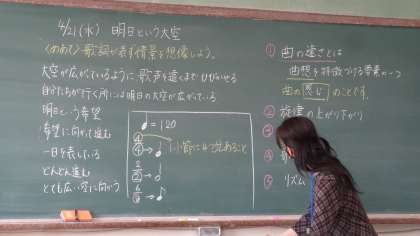 4/21(水) 明日という大空
〈めあて〉歌詞が表す情景を想像しよう。
大空が広がっているように歌声を遠くまでひびかせる
自分たちが行く所には明日の大空が広がっている
明日という希望
希望に向かって進む
一日を表している
どんどん進む
とても広い空に向かう
♩=120
4/4 → ♩ 1小節に4つ
2/2 →
6/8 → ♪
① 曲の速さとは
曲想を特徴づける要素の一つ
曲の感じのことです。
② 旋律の上がり下がり
③
④
⑤ リズム